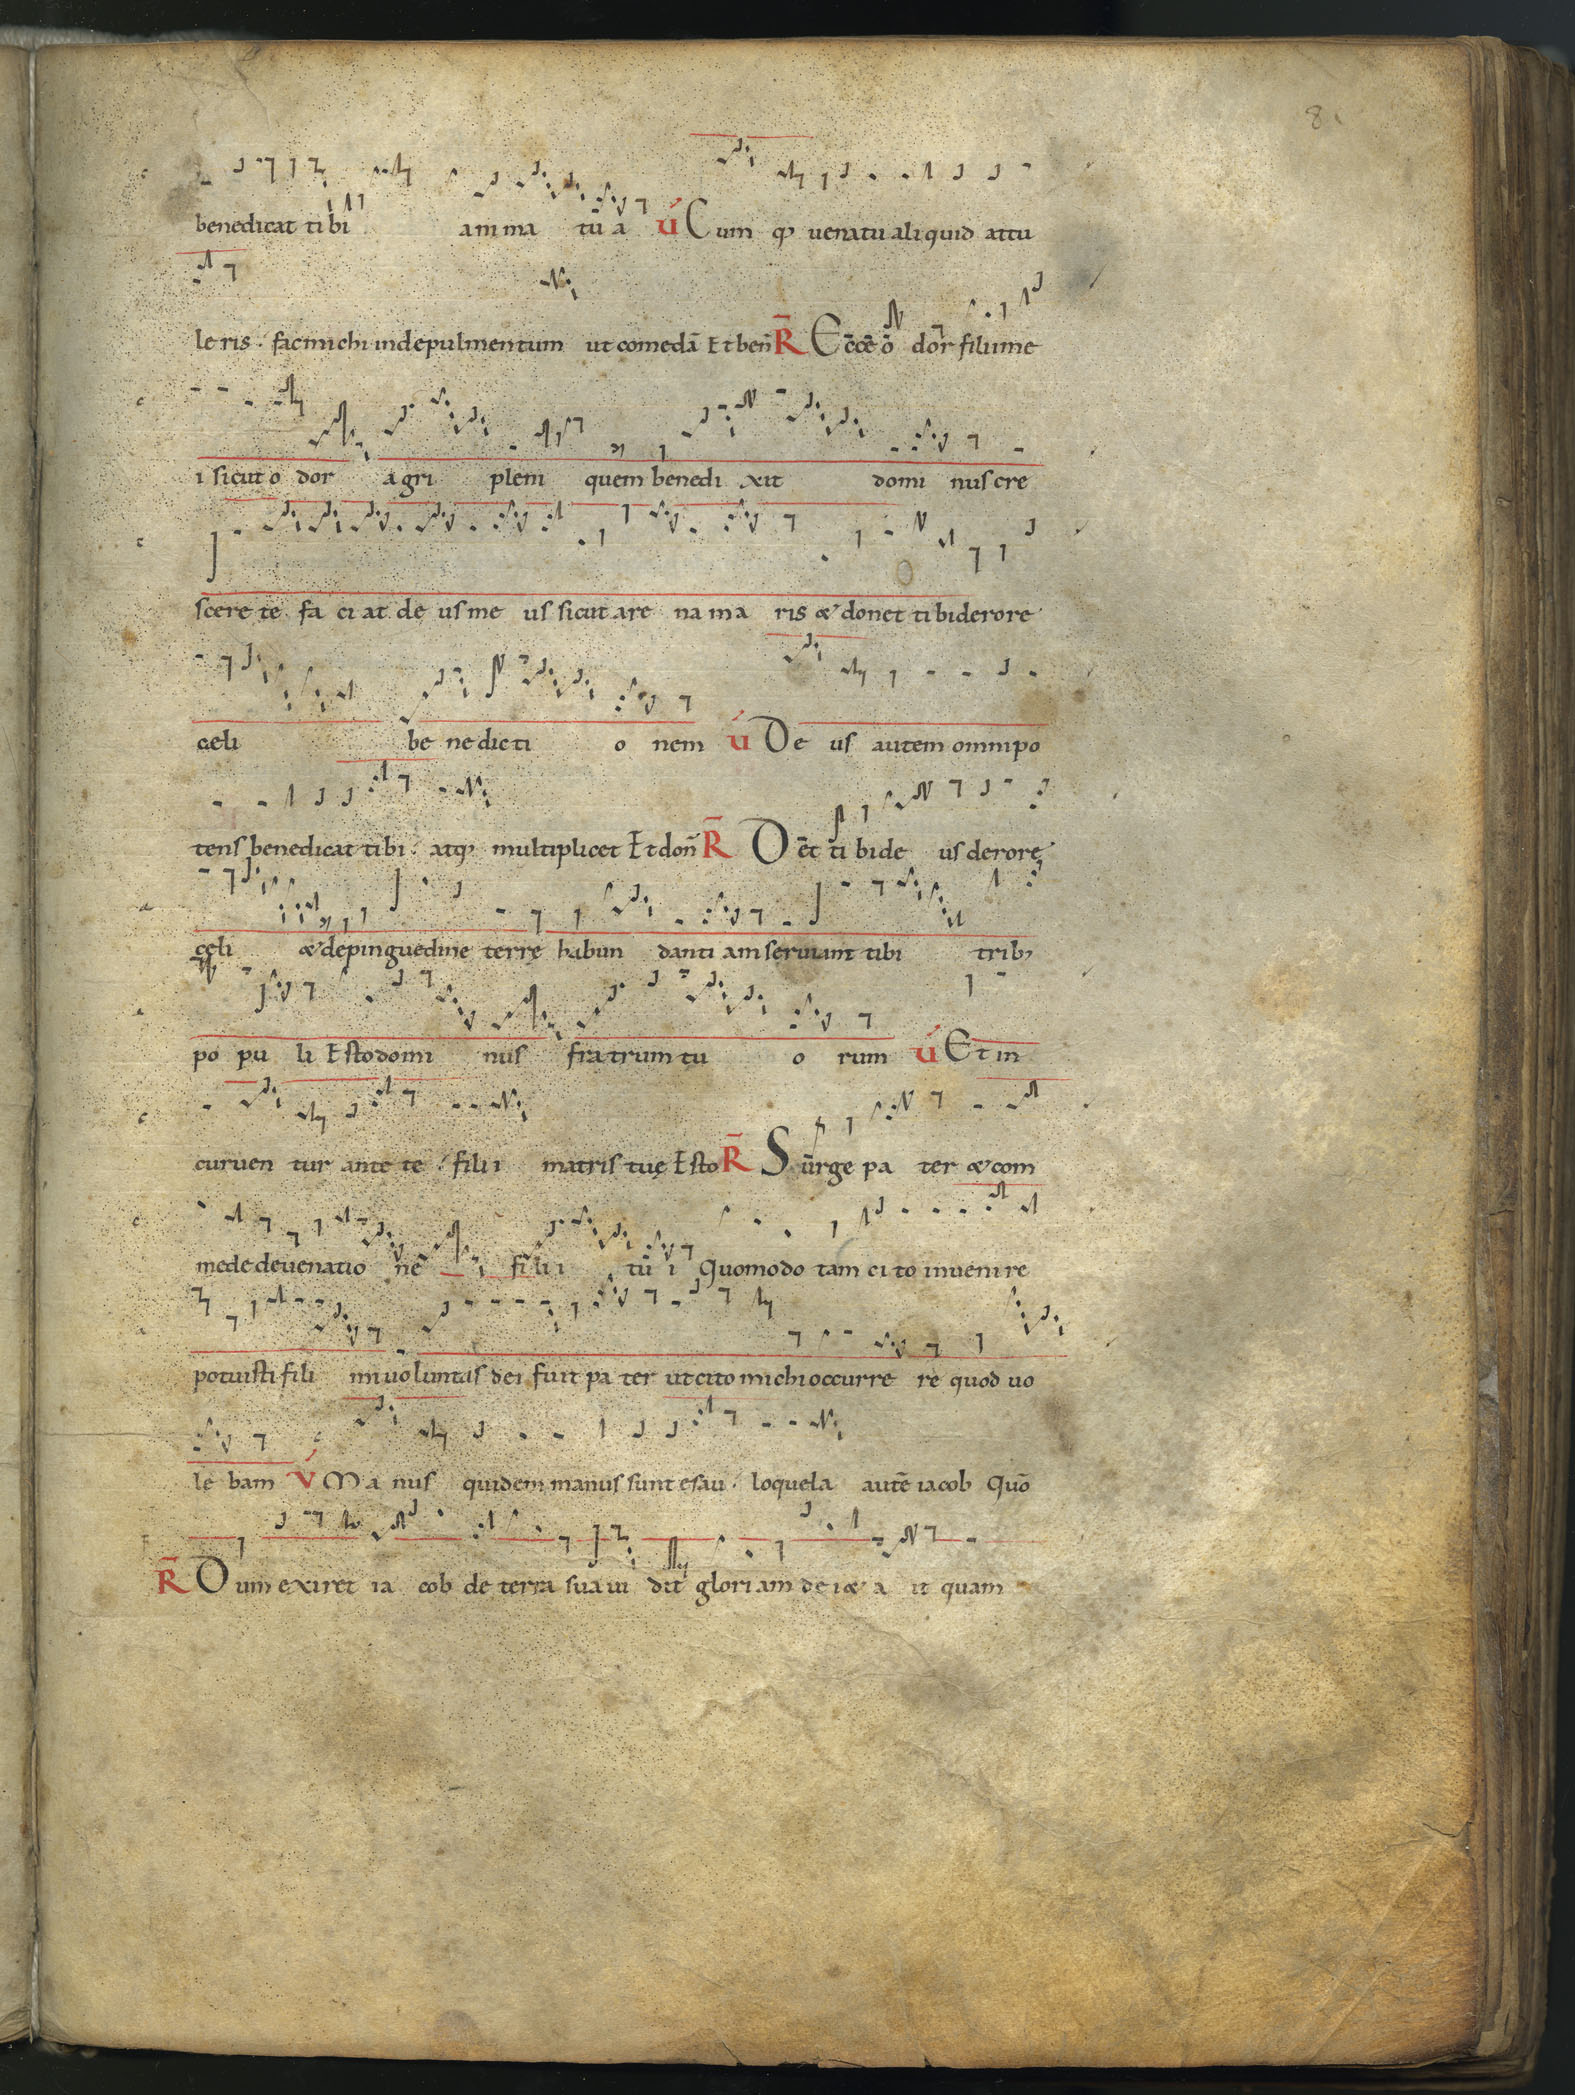 81
benedicat tibi anima tua V Cum q; uenatu aliquid attu
leris . fac michi inde pulmentum ut comedā Et beñ R Ecce odor filii me
i sicut odor agri pleni quem benedixit dominus cre
scere te faciat deus meus sicut arena maris & donet tibi de rore
celi benedictionem V Deus autem omnipo
tens benedicat tibi . atq; multiplicet Et doñ R Det tibi deus de rore
cęli & de pinguedine terrę habundantiam seruiant tibi trib;
populi Esto dominus fratrum tuorum V Et in
curuentur ante te . filii matris tuę Esto R Surge pater & com
mede de uenatione filii tui Quomodo tam cito inuenire
potuisti fili mi uoluntas dei fuit pater ut cito michi occurrere quod uo
lebam V Manus quidem manus sunt esau . loquela autē iacob Quō
R Dum exiret iacob de terra sua uidit gloriam dei & ait quam